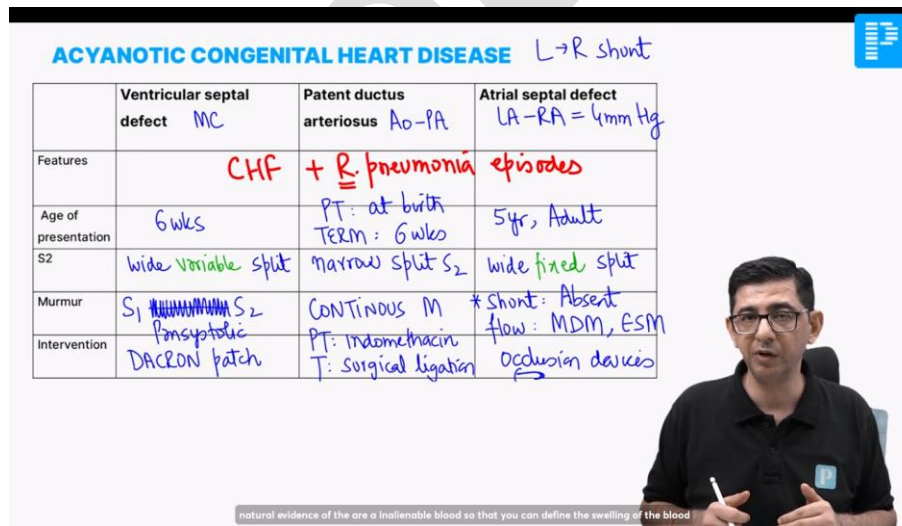 ACYANOTIC CONGENITAL HEART DISEASE L→R shunt
P
Ventricular septal defect MC
Patent ductus arteriosus Ao-PA
Atrial septal defect LA-RA = 4mm Hg
Features
CHF + R. pneumonia episodes
Age of presentation
6wks
PT: at birth
TERM: 6wks
5yr, Adult
S2
wide variable split
narrow split S2
wide fixed split
Murmur
S1 S2
Pansystolic
CONTINOUS M
*shunt: Absent
flow: MDM, ESM
Intervention
DACRON patch
PT: Indomethacin
T: surgical ligation
Occlusion devices
P
natural evidence of the are a inalienable blood so that you can define the swelling of the blood